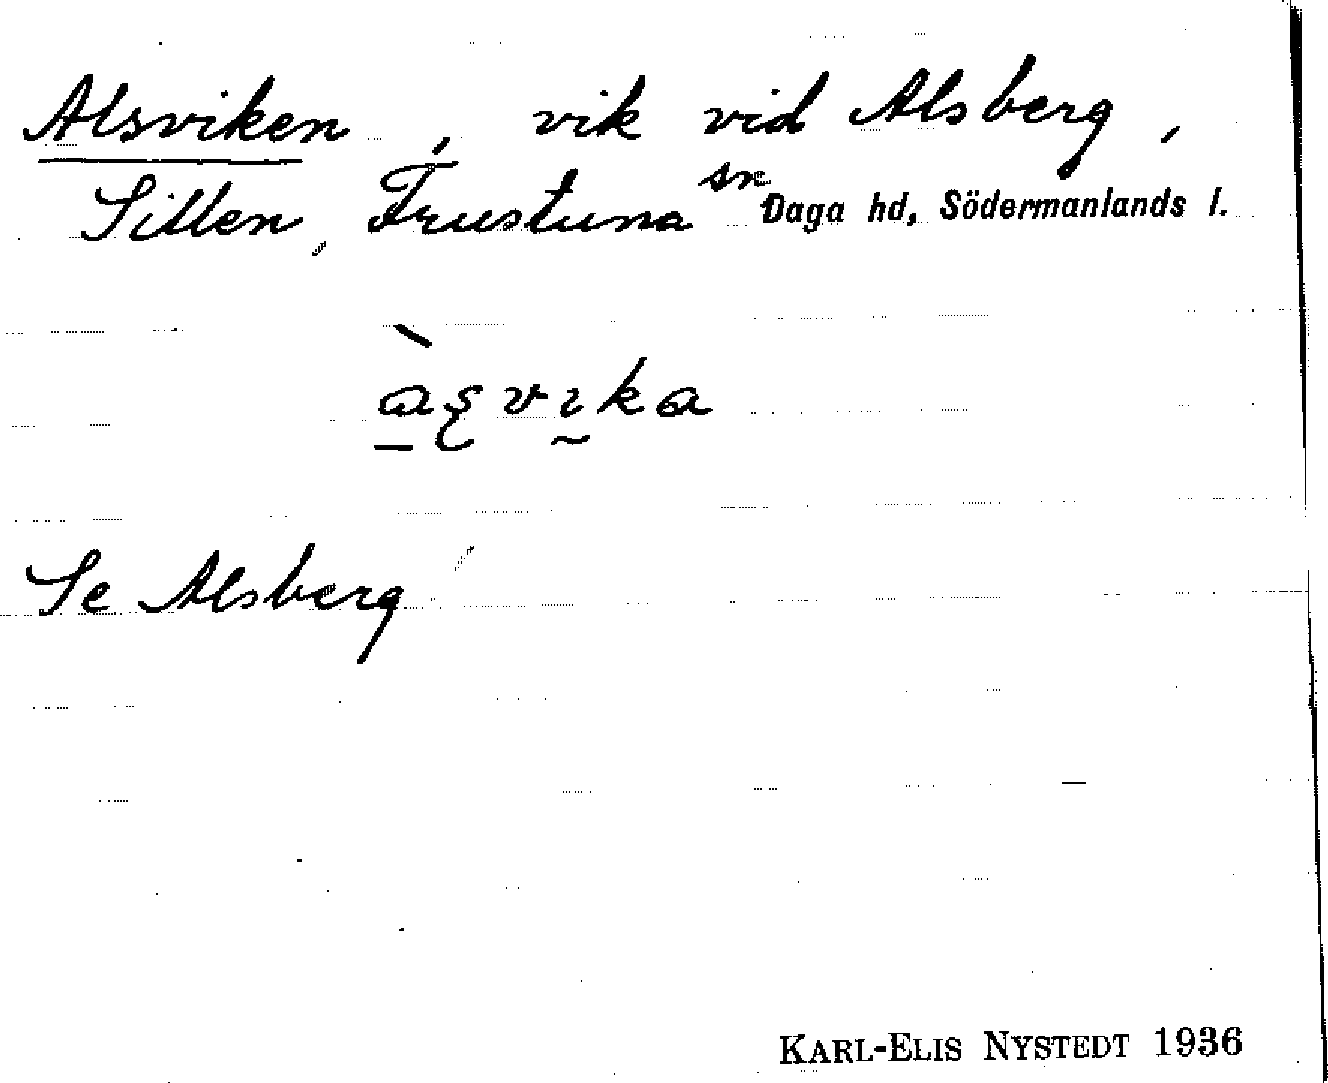 Alsviken, vik vid Alsberg,
Sillen, Frustuna sn Daga hd, Södermanlands l.
Se Alsberg
KARL-ELIS NYSTEDT 1936